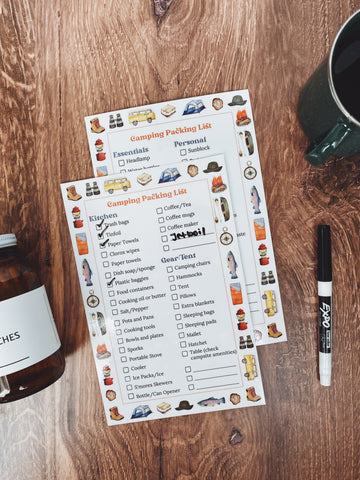 Camping Packing List
Essentials
Headlamp
Personal
Sunblock
Camping Packing List
Kitchen
Trash bags
Tinfoil
Paper Towels
Clorox wipes
Paper towels
Dish soap/sponge
Plastic baggies
Food containers
Cooking oil or butter
Salt/Pepper
Pots and Pans
Cooking tools
Bowls and plates
Sporks
Portable Stove
Cooler
Ice Packs/Ice
S'mores Skewers
Bottle/Can Opener
Coffee/Tea
Coffee mugs
Coffee maker
Jetboil
Gear Tent
Camping chairs
Hammocks
Tent
Pillows
Extra blankets
Sleeping bags
Sleeping pads
Mallet
Hatchet
Table (check
campsite amenities)
CHES
EXPO